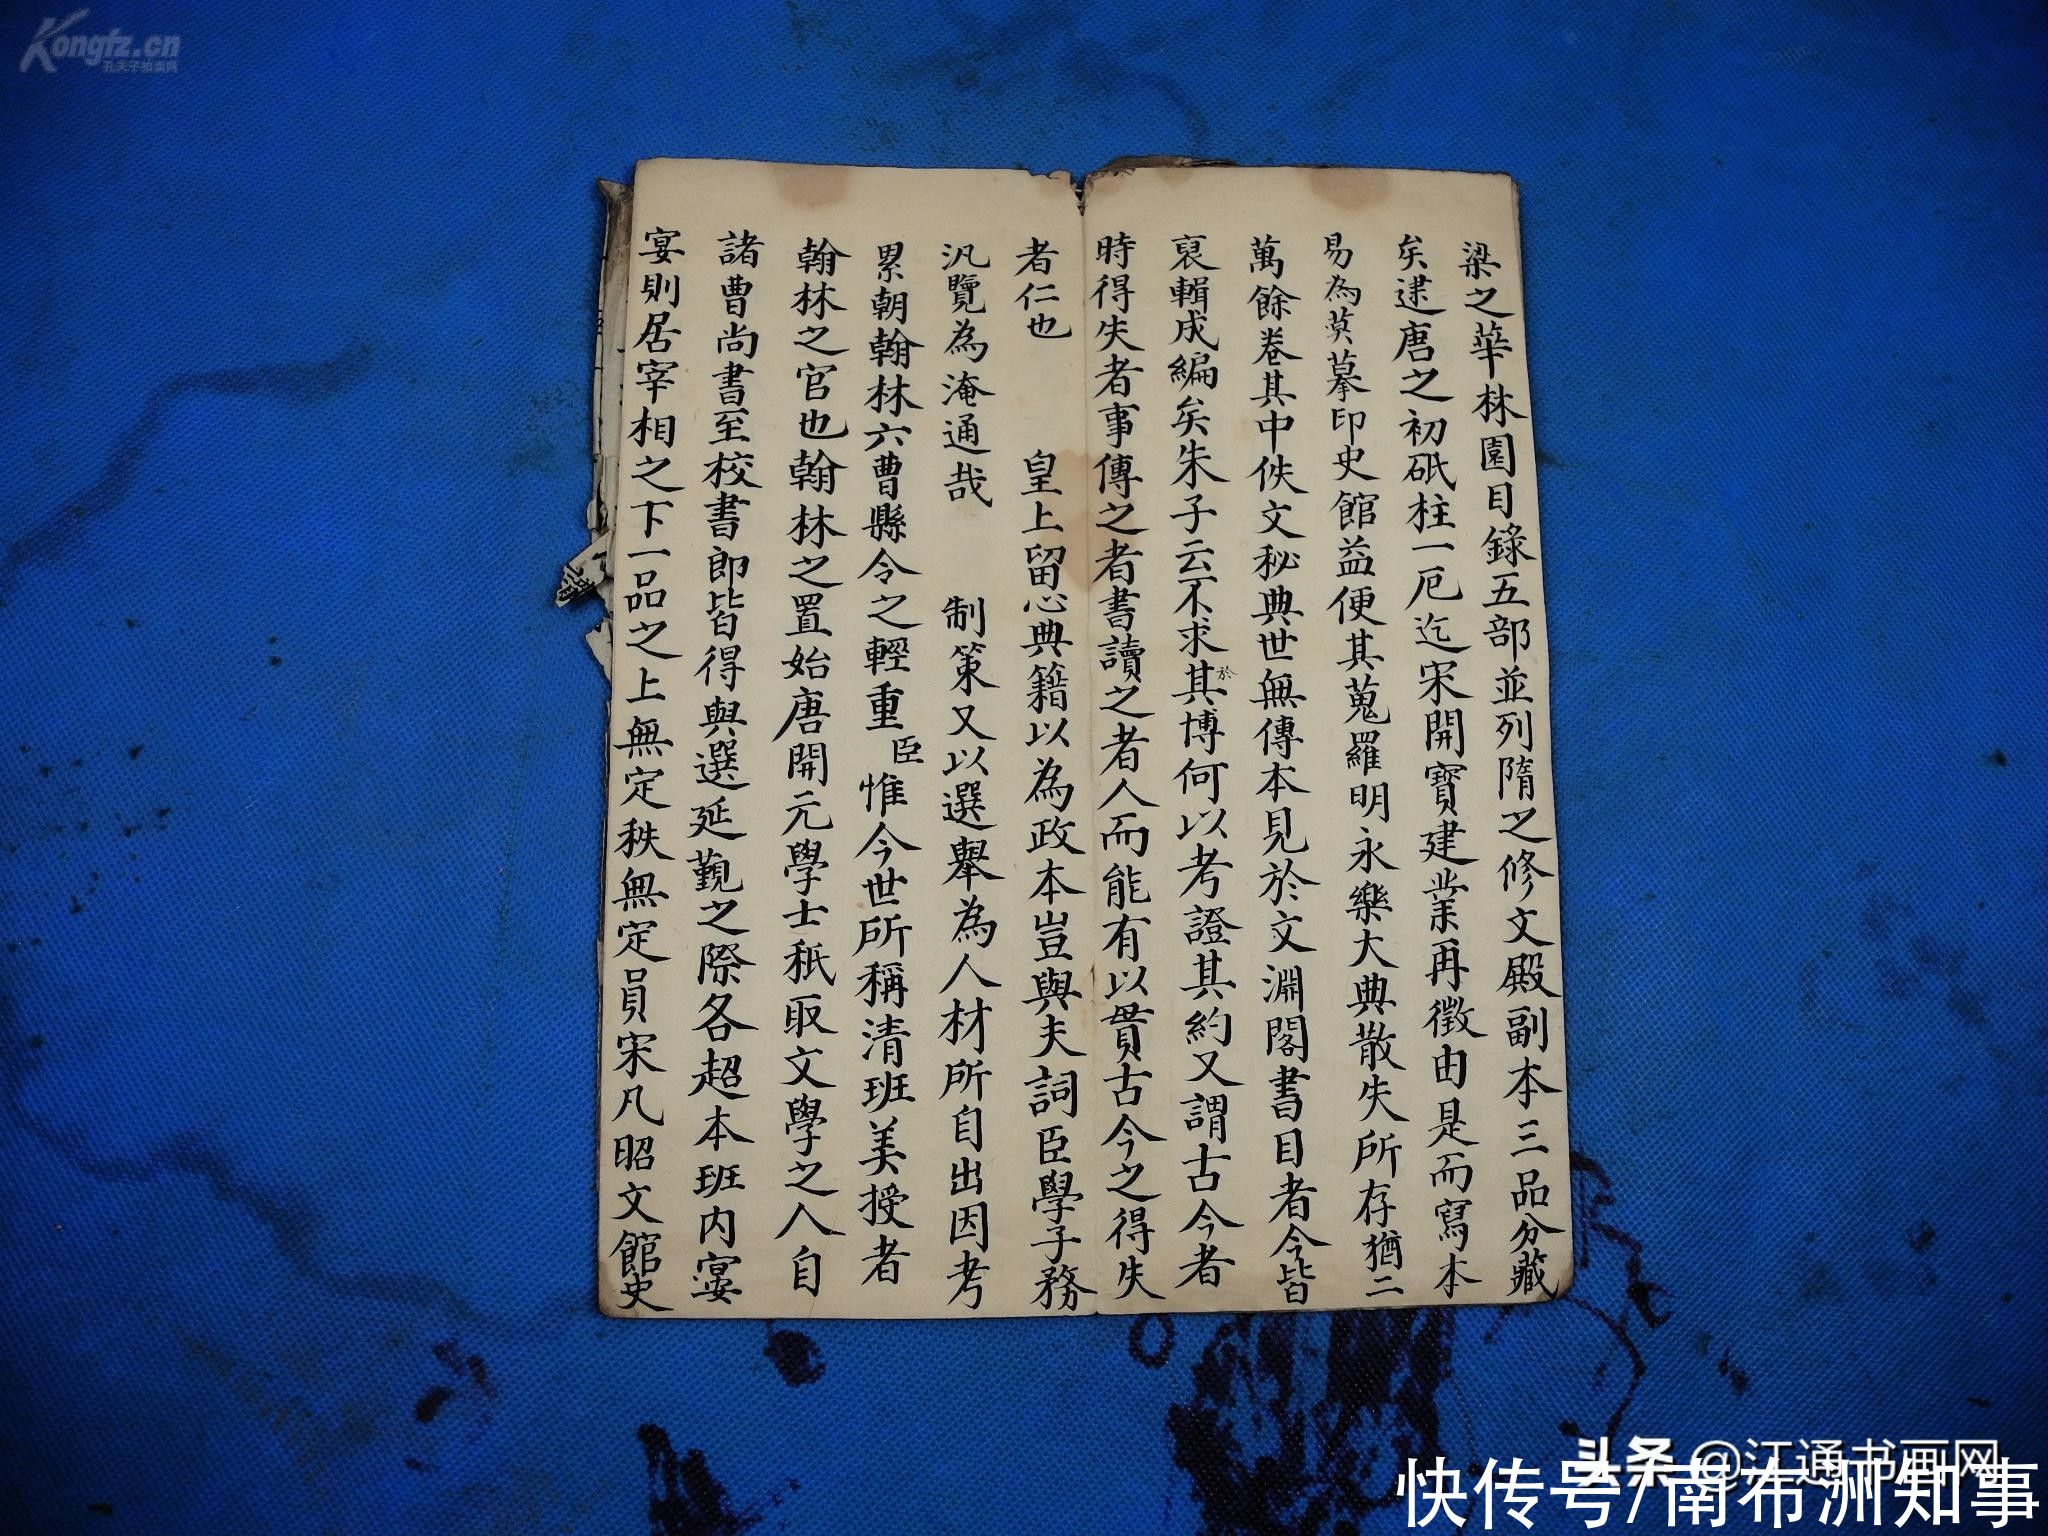 Kongfz.cn
孔夫子拍卖网
梁之華林園目錄五部並列隋之修文殿副本三品分藏
矣逮唐之初砥柱一厄迄宋開寶建業再徵由是而寫本
易為萸摹印史館益便其蒐羅明永樂大典散失所存猶二
萬餘卷其中佚文秘典世無傳本見於文淵閣書目者今皆
裒輯成編矣朱子云不求其於博何以考證其約又謂古今者
時得失者事傳之者書讀之者人而能有以貫古今之得失
者仁也 皇上留心典籍以為政本豈與夫詞臣學子務
汎覽為淹通哉 制策又以選舉為人材所自出因考
累朝翰林六曹縣令之輕重臣惟今世所稱清班美授者
翰林之官也翰林之置始唐開元學士秖取文學之人自
諸曹尚書至校書郎皆得與選延觀之際各超本班內宴
宴則居宰相之下一品之上無定秩無定員宋凡昭文館史
头条 @江通书画网
快传号/南布洲知事